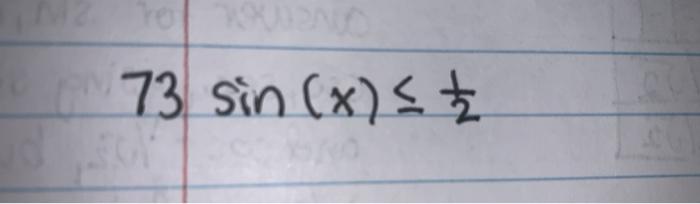 73 sin (x) ≤ 1/2